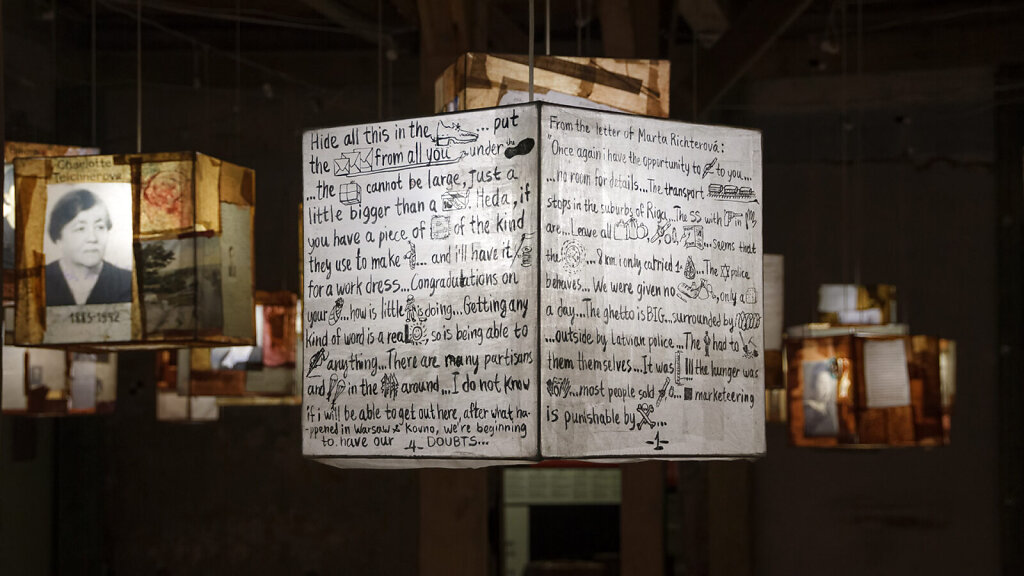 Charlotte
Teichnerová
1885-1942
Hide all this in the ... put
the from all you under the
... the cannot be large, just a
little bigger than a Heda, if
you have a piece of of the kind
they use to make ... and i'll have it
for a work dress... Congradulations on
your ... how is little doing... Getting any
kind of word is a real so is being able to
anything... There are many partisans
and in the around... I do not know
if i will be able to get out here, after what ha-
-ppened in Warsaw & Kovno, we're beginning
to have our DOUBTS...
-4-
From the letter of Marta Richterová:
"Once again i have the opportunity to to you...
...no room for details... The transport
stops in the suburbs of Riga... The SS with
are... Leave all ... seems that
the ... 8 km i only carried 1 ... The police
behaves... We were given no , only a
a day... The ghetto is BIG... surrounded by
...outside by Latvian police... The had to
them themselves... It was !!! the hunger was
...most people sold a... marketeering
is punishable by ...
-1-